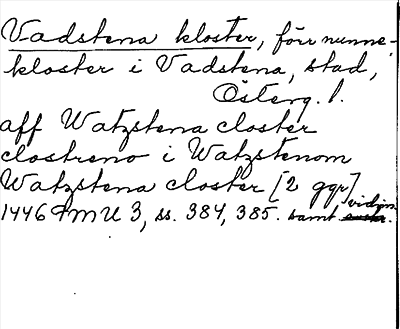 Vadstena kloster, förr nunne-
kloster i Vadstena, stad,
Österg. l.
aff Watzstena closter
clostreno i Watzstenom
Watzstena closter [2 ggr]
1446 FMU 3, ss. 384, 385. samt vidim.